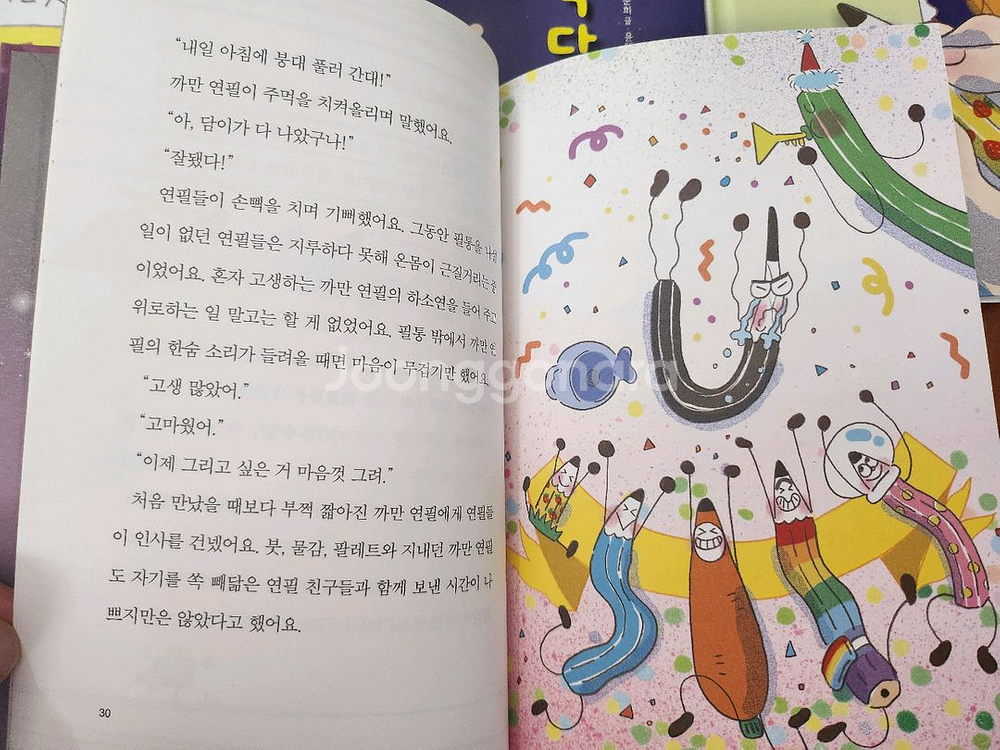 "내일 아침에 붕대 풀러 간대!"
까만 연필이 주먹을 치켜올리며 말했어요.
"아, 담이가 다 나았구나!"
"잘됐다!"
연필들이 손뼉을 치며 기뻐했어요. 그동안 필통을 나설
일이 없던 연필들은 지루하다 못해 온몸이 근질거리는 중
이었어요. 혼자 고생하는 까만 연필의 하소연을 들어 주고
위로하는 일 말고는 할 게 없었어요. 필통 밖에서 까만 연
필의 한숨 소리가 들려올 때면 마음이 무겁기만 했어요.
"고생 많았어."
"고마웠어."
"이제 그리고 싶은 거 마음껏 그려."
처음 만났을 때보다 부쩍 짧아진 까만 연필에게 연필들
이 인사를 건넸어요. 붓, 물감, 팔레트와 지내던 까만 연필
도 자기를 쏙 빼닮은 연필 친구들과 함께 보낸 시간이 나
쁘지만은 않았다고 했어요.
30